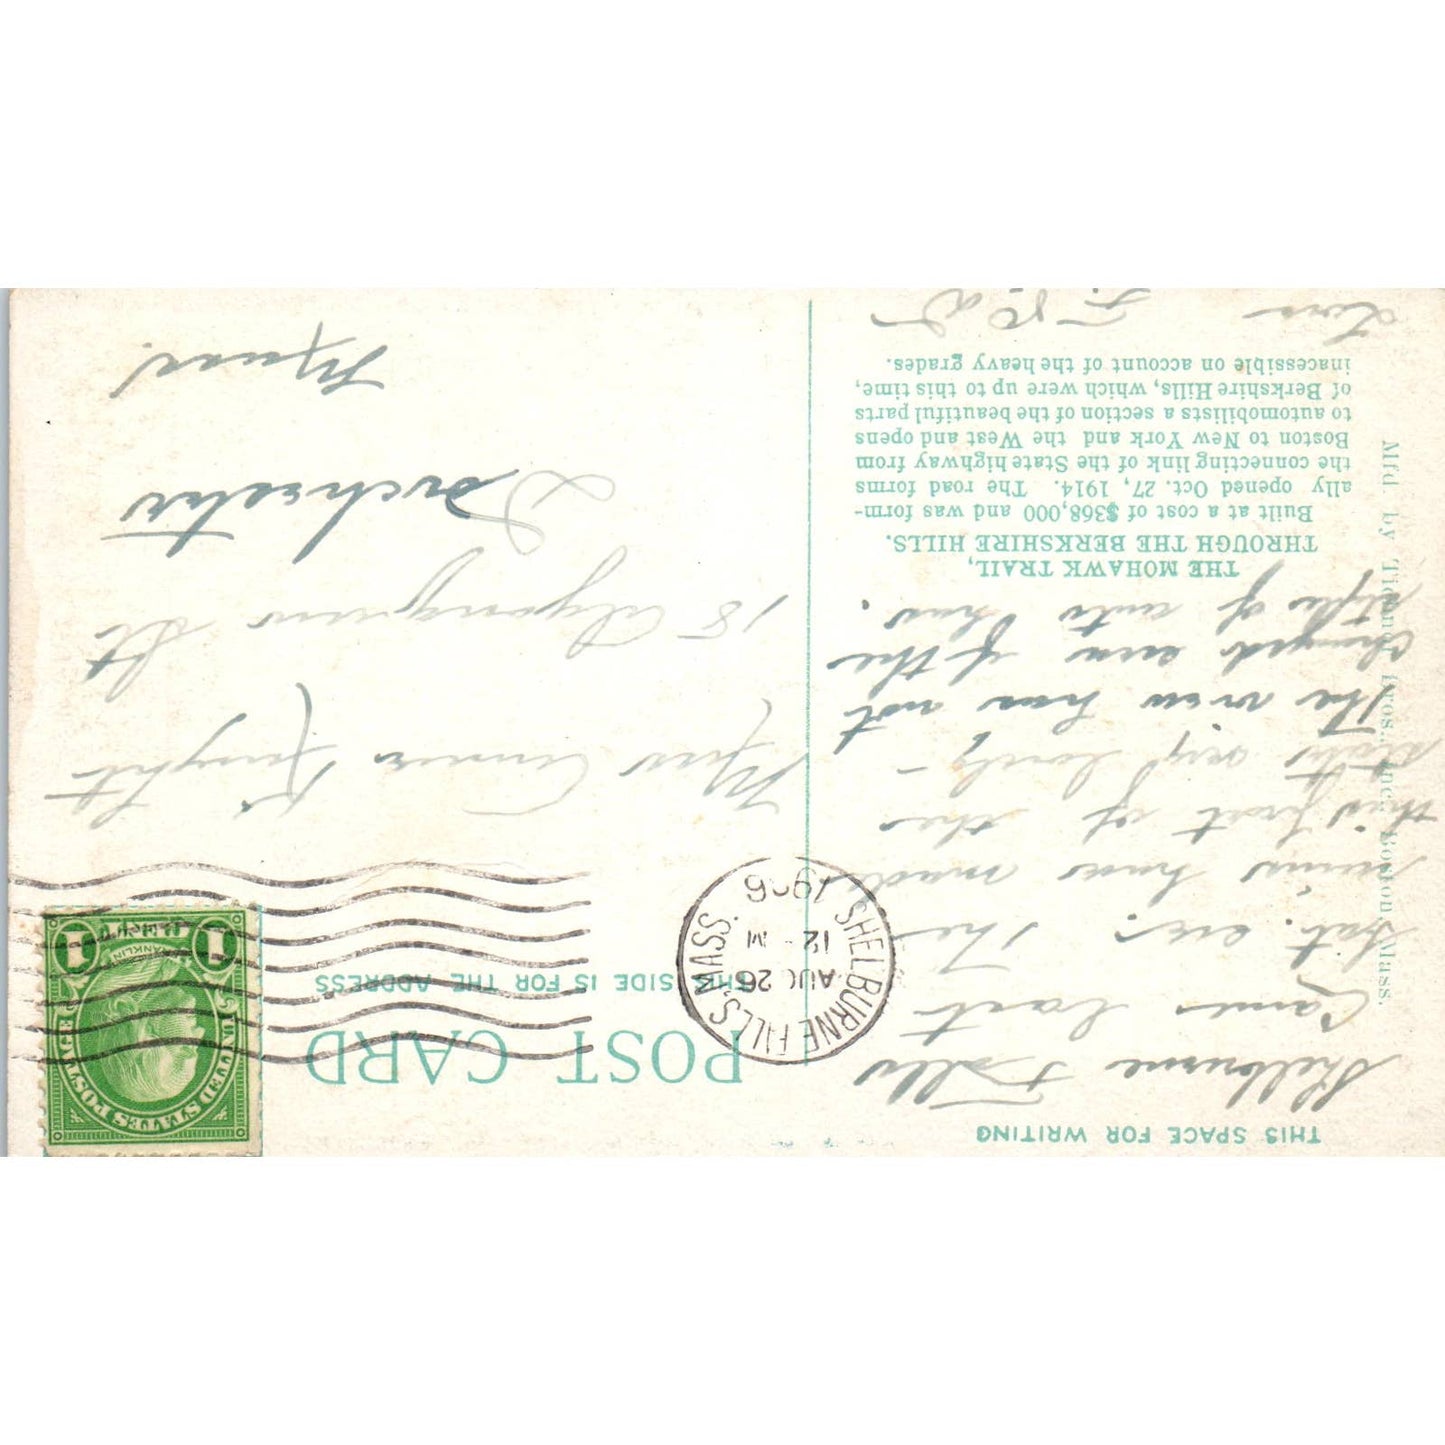 THIS SPACE FOR WRITING
Shelburne Falls
Came last
Sat. eve. The
rains has made
this part of the
state very lovely –
The view has not
changed even if the
style of auto has.
THE MOHAWK TRAIL,
THROUGH THE BERKSHIRE HILLS.
Built at a cost of $368,000 and was form-
ally opened Oct. 27, 1914. The road forms
the connecting link of the State highway from
Boston to New York and the West and opens
to automobilists a section of the beautiful parts
of Berkshire Hills, which were up to this time,
inaccessible on account of the heavy grades.
Love
Mfd. by Tichnor Bros. Inc., Boston, Mass.
POST CARD
THIS SIDE IS FOR THE ADDRESS
SHELBURNE FALLS, MASS.
AUG 26
12 M
UNITED STATES POSTAGE
FRANKLIN
1 1
Miss Annie Knight
18 Algonquin St
Dorchester
Mass.